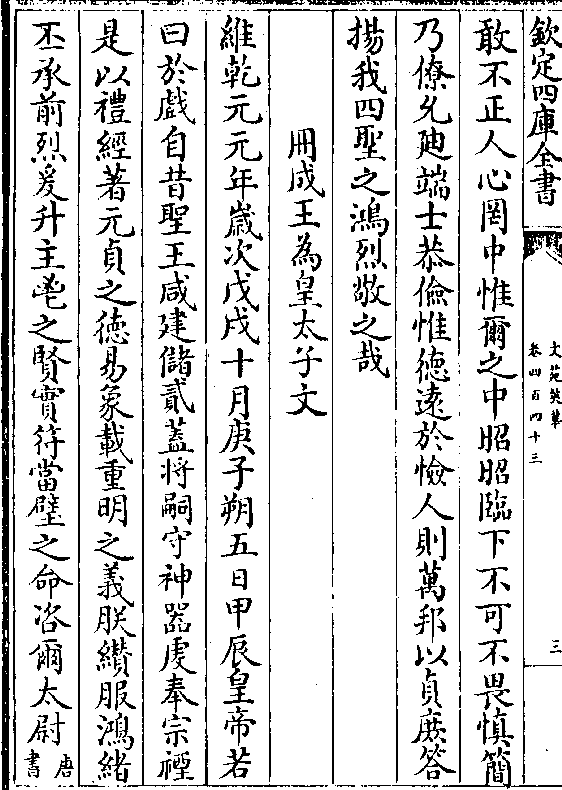 欽定四庫全書
文苑英華
卷四百四十三
三
敢不正人心罔中惟爾之中昭昭臨下不可不畏慎簡
乃僚允廸端士恭儉惟德遠於憸人則萬邦以貞庶答
揚我四聖之鴻烈敬之哉
冊成王為皇太子文
維乾元元年嵗次戊戌十月庚子朔五日甲辰皇帝若
曰於戲自昔聖王咸建儲貳蓋将嗣守神器虔奉宗禋
是以禮經著元貞之徳易象載重明之義朕纉服鴻緒
丕承前烈爰升主鬯之賢實符當璧之命咨爾太尉唐書